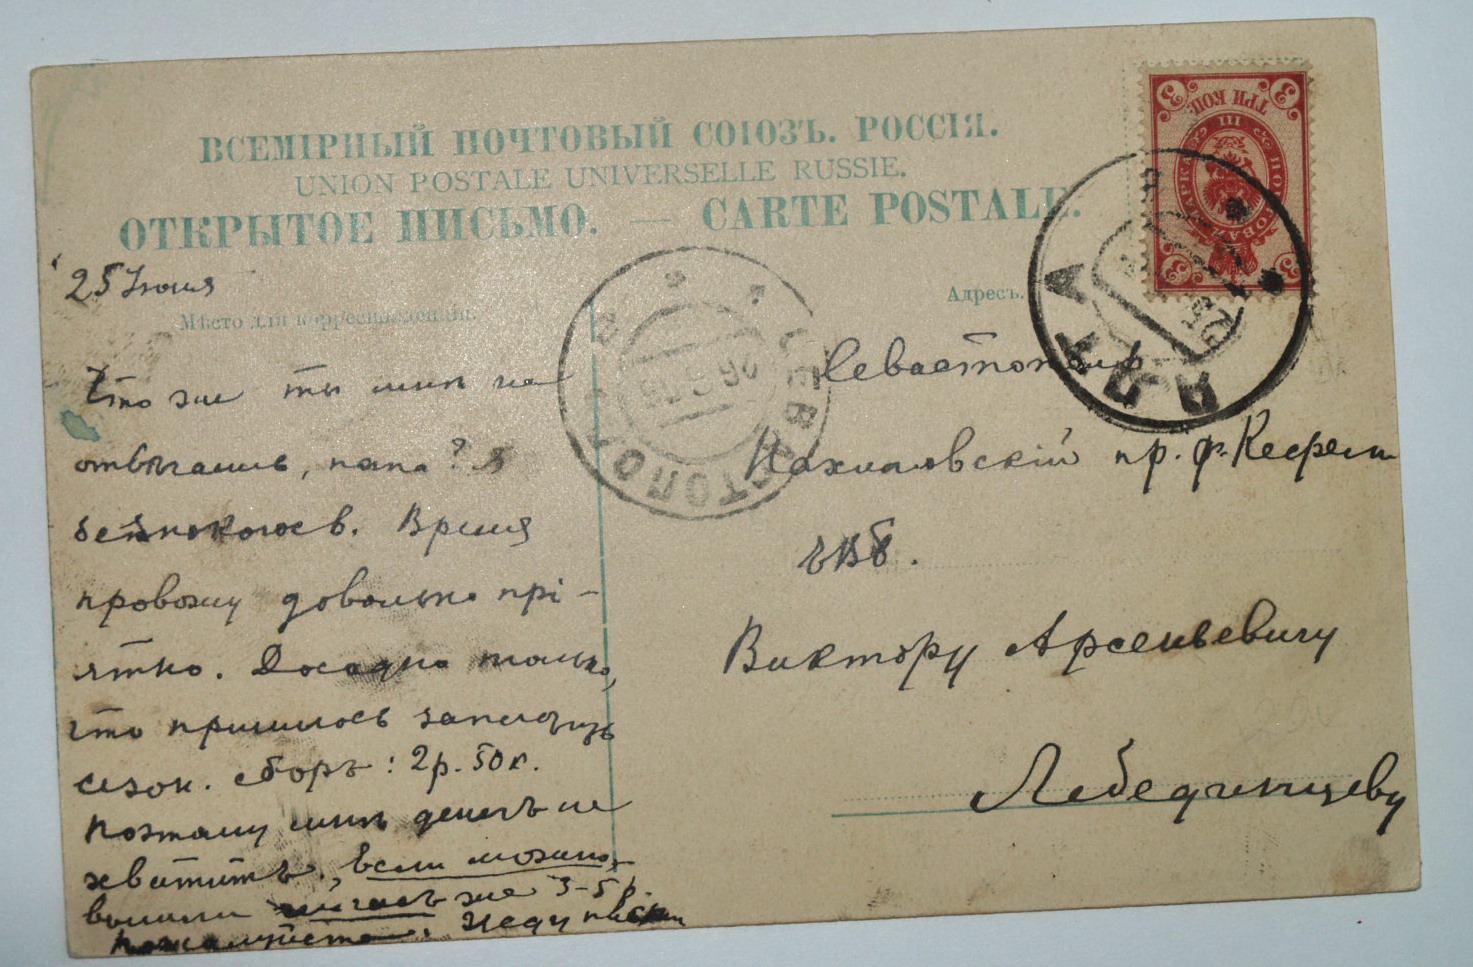 ВСЕМІРНЫЙ ПОЧТОВЫЙ СОЮЗЪ. РОССІЯ.
UNION POSTALE UNIVERSELLE RUSSIE.
ОТКРЫТОЕ ПИСЬМО. — CARTE POSTALE.
ТРИ КОП.
3 3
III
ПОЧТОВАЯ МАРКА
3 3
ЯЛТА
СЕВАСТОПОЛЬ
25 Іюня
Мѣсто для корреспонденціи.
Что же ты мнѣ не
отвѣчаешь, папа? Я
безпокоюсь. Время
провожу довольно прі-
ятно. Досадно только,
что пришлось заплатить
сезон. сборъ: 2 р. 50 к.
Поэтому мнѣ денегъ не
хватитъ, если можно,
вышли же 3-5 р.
пожалуйста. Жду
Адресъ.
Севастополь
Нахимовскій пр. ф.
Виктору Арсеньевичу
Лебединцеву